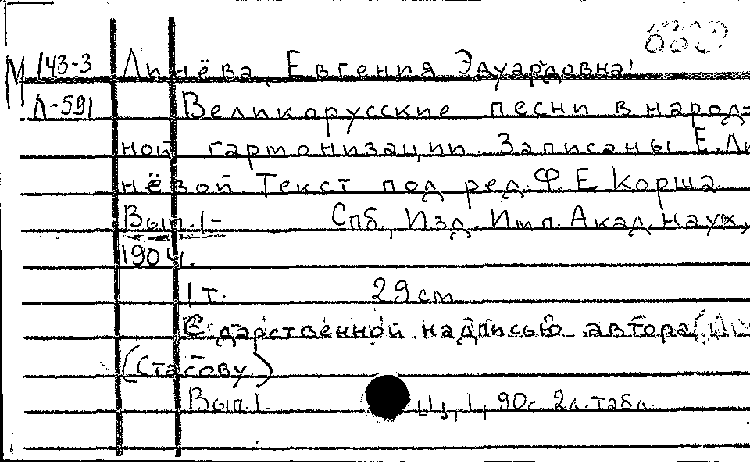 М 143-3 Линёва, Евгения Эдуардовна
Л-591 Великорусские песни в народ-
ной гармонизации. Записаны Е. Ли
нёвой. Текст под ред. Ф. Е. Корша
Вып. 1- Спб., Изд. Имп. Акад. наук,
1904.
1 т. 29 cm
С дарственной надписью автора
(Стасову)
Вып. 1. 90 с. 2 л. табл.